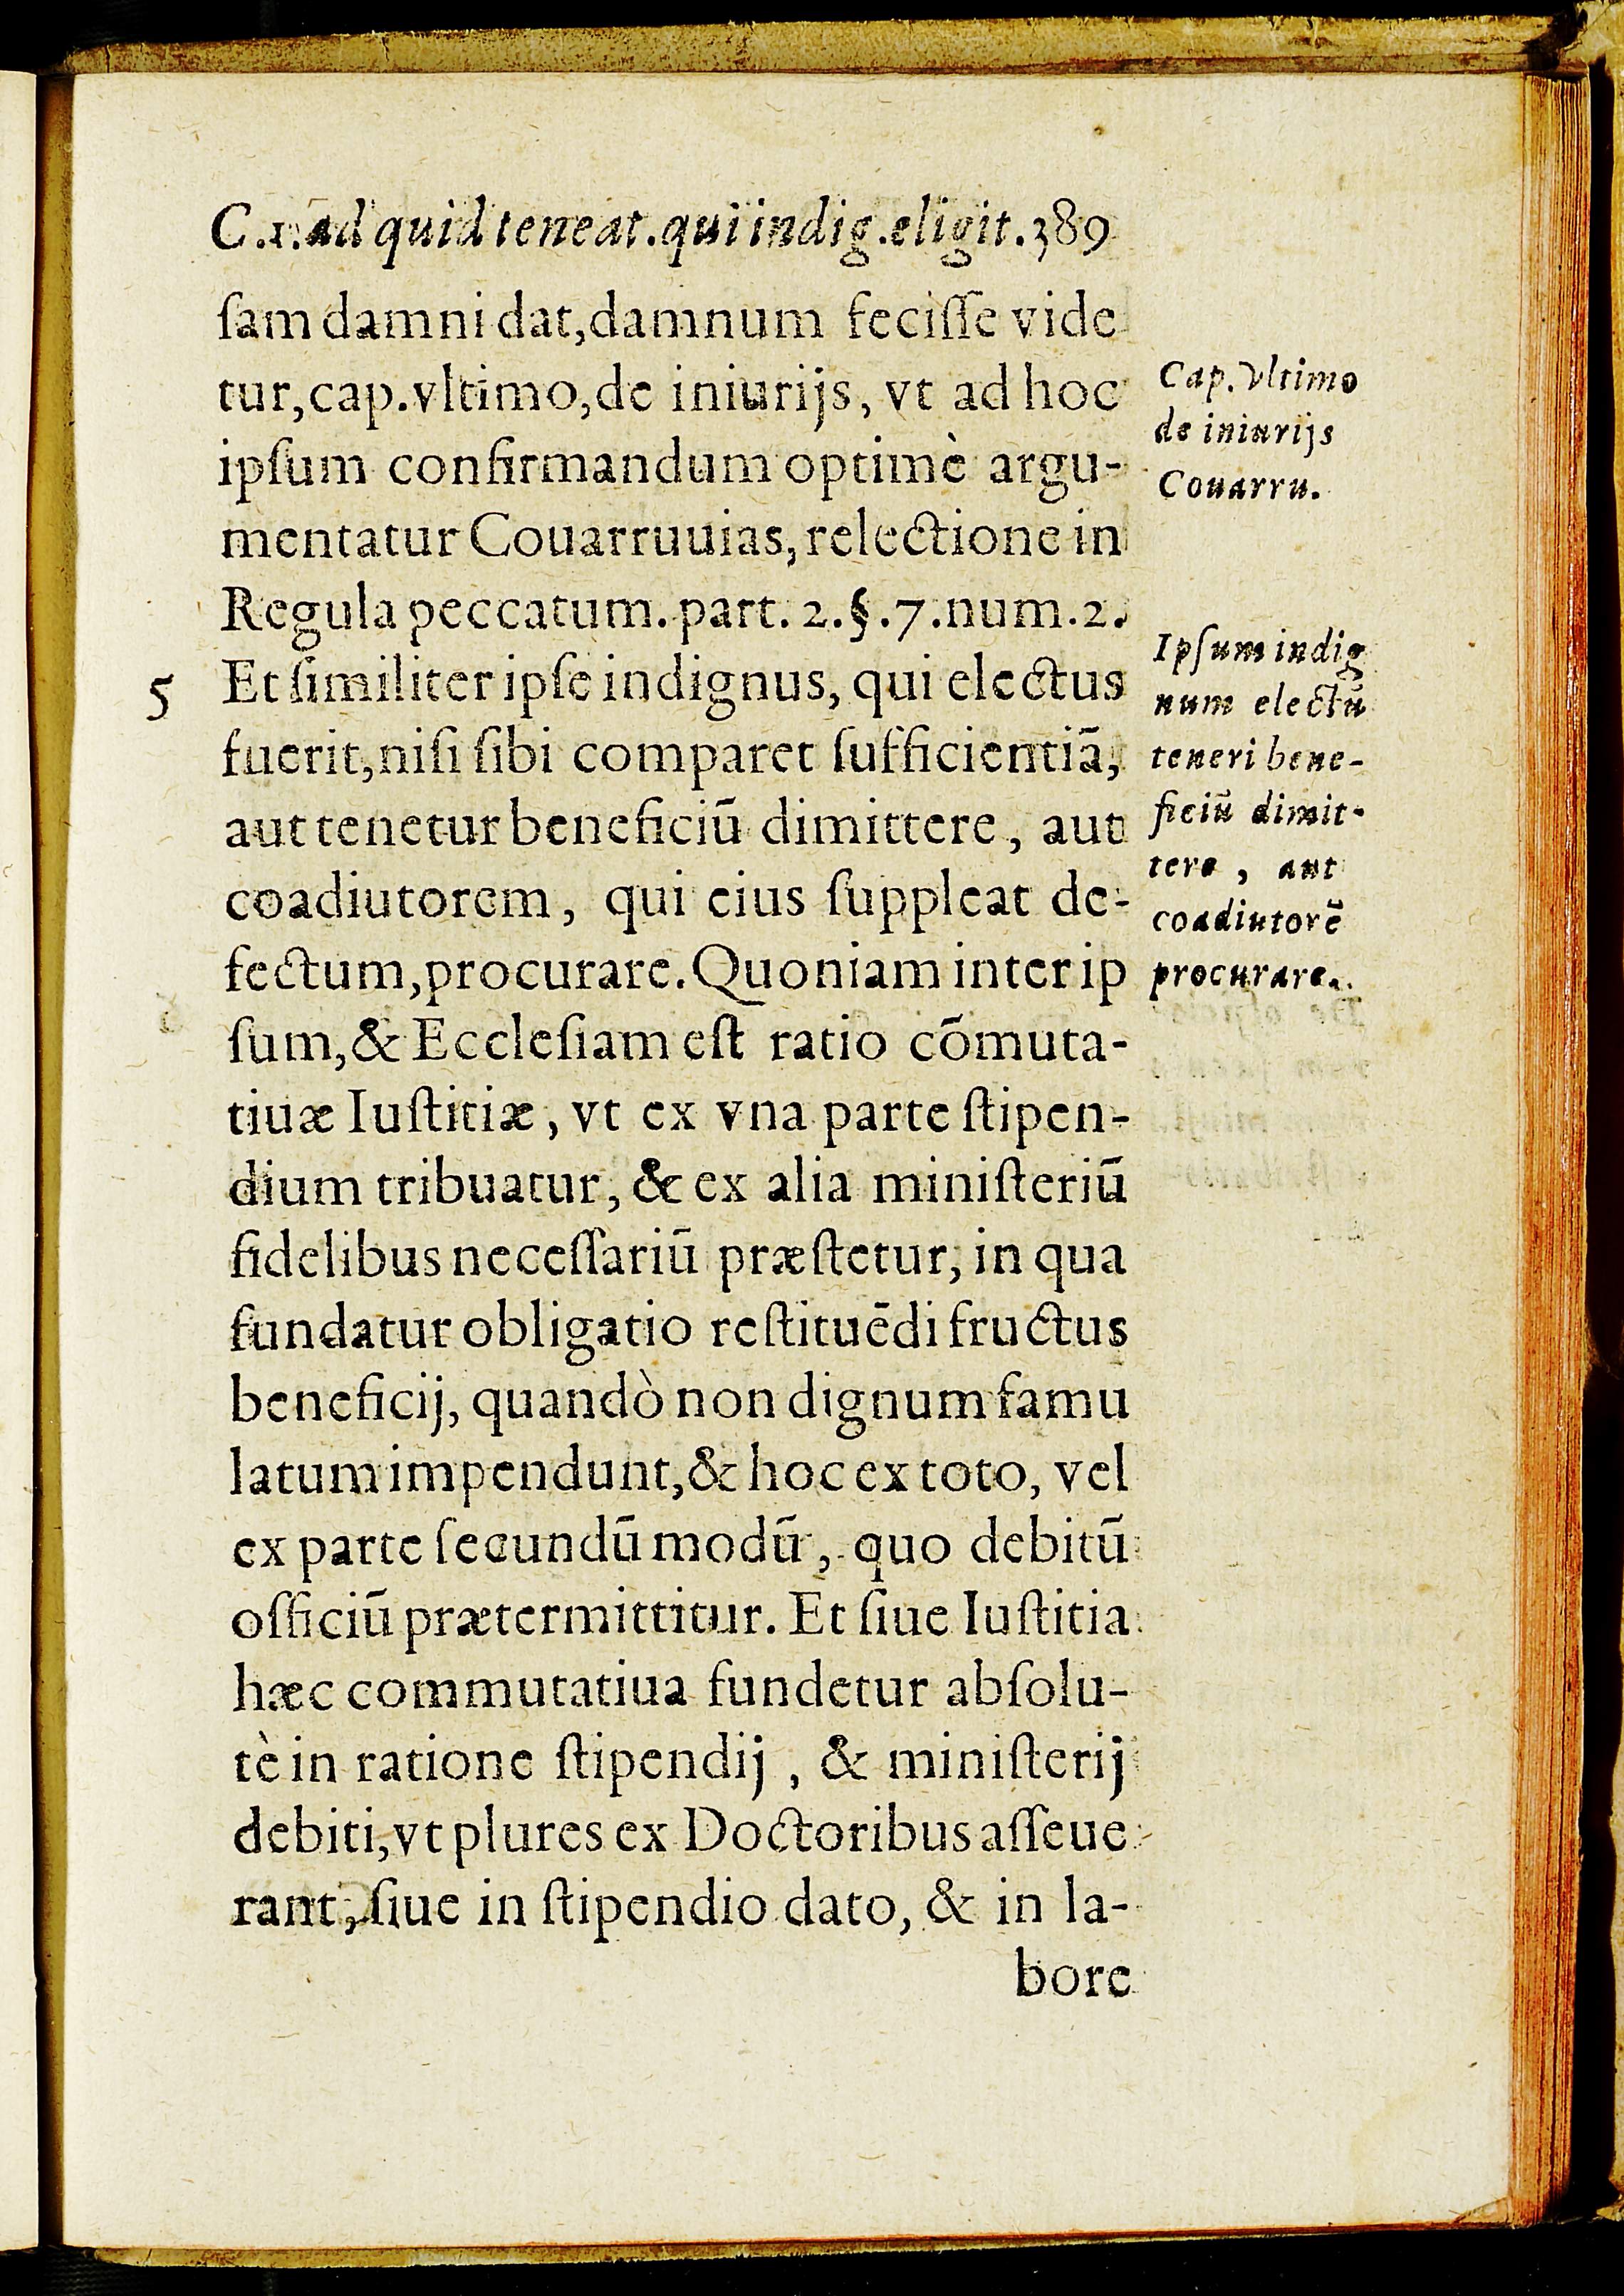 C.1.ad quid teneat.qui indig.eligit.389
ſam damni dat,damnum feciſſe vide
tur,cap.vltimo,de iniurijs, vt ad hoc
ipſum confirmandum optimè argu-
mentatur Couarruuias,relectione in
Regula peccatum.part. 2.§.7.num.2.
5 Et ſimiliter ipſe indignus, qui electus
fuerit,niſi ſibi comparet ſufficientiā,
aut tenetur beneficiū dimittere, aut
coadiutorem, qui eius ſuppleat de-
fectum,procurare.Quoniam inter ip
ſum,& Eccleſiam eſt ratio cōmuta-
tiuæ Iuſtitiæ, vt ex vna parte ſtipen-
dium tribuatur, & ex alia miniſteriū
fidelibus neceſſariū præſtetur, in qua
fundatur obligatio reſtituēdi fructus
beneficij, quandò non dignum famu
latum impendunt,& hoc ex toto, vel
ex parte ſecundū modū, quo debitū
officiū prætermittitur. Et ſiue Iuſtitia
hæc commutatiua fundetur abſolu-
tè in ratione ſtipendij, & miniſterij
debiti,vt plures ex Doctoribus aſſeue
rant, ſiue in ſtipendio dato, & in la-
bore
Cap.vltimo
de iniurijs
Couarru.
Ipſum indig
num electū
teneri bene-
ficiū dimit-
tere, aut
coadiutorē
procurare.